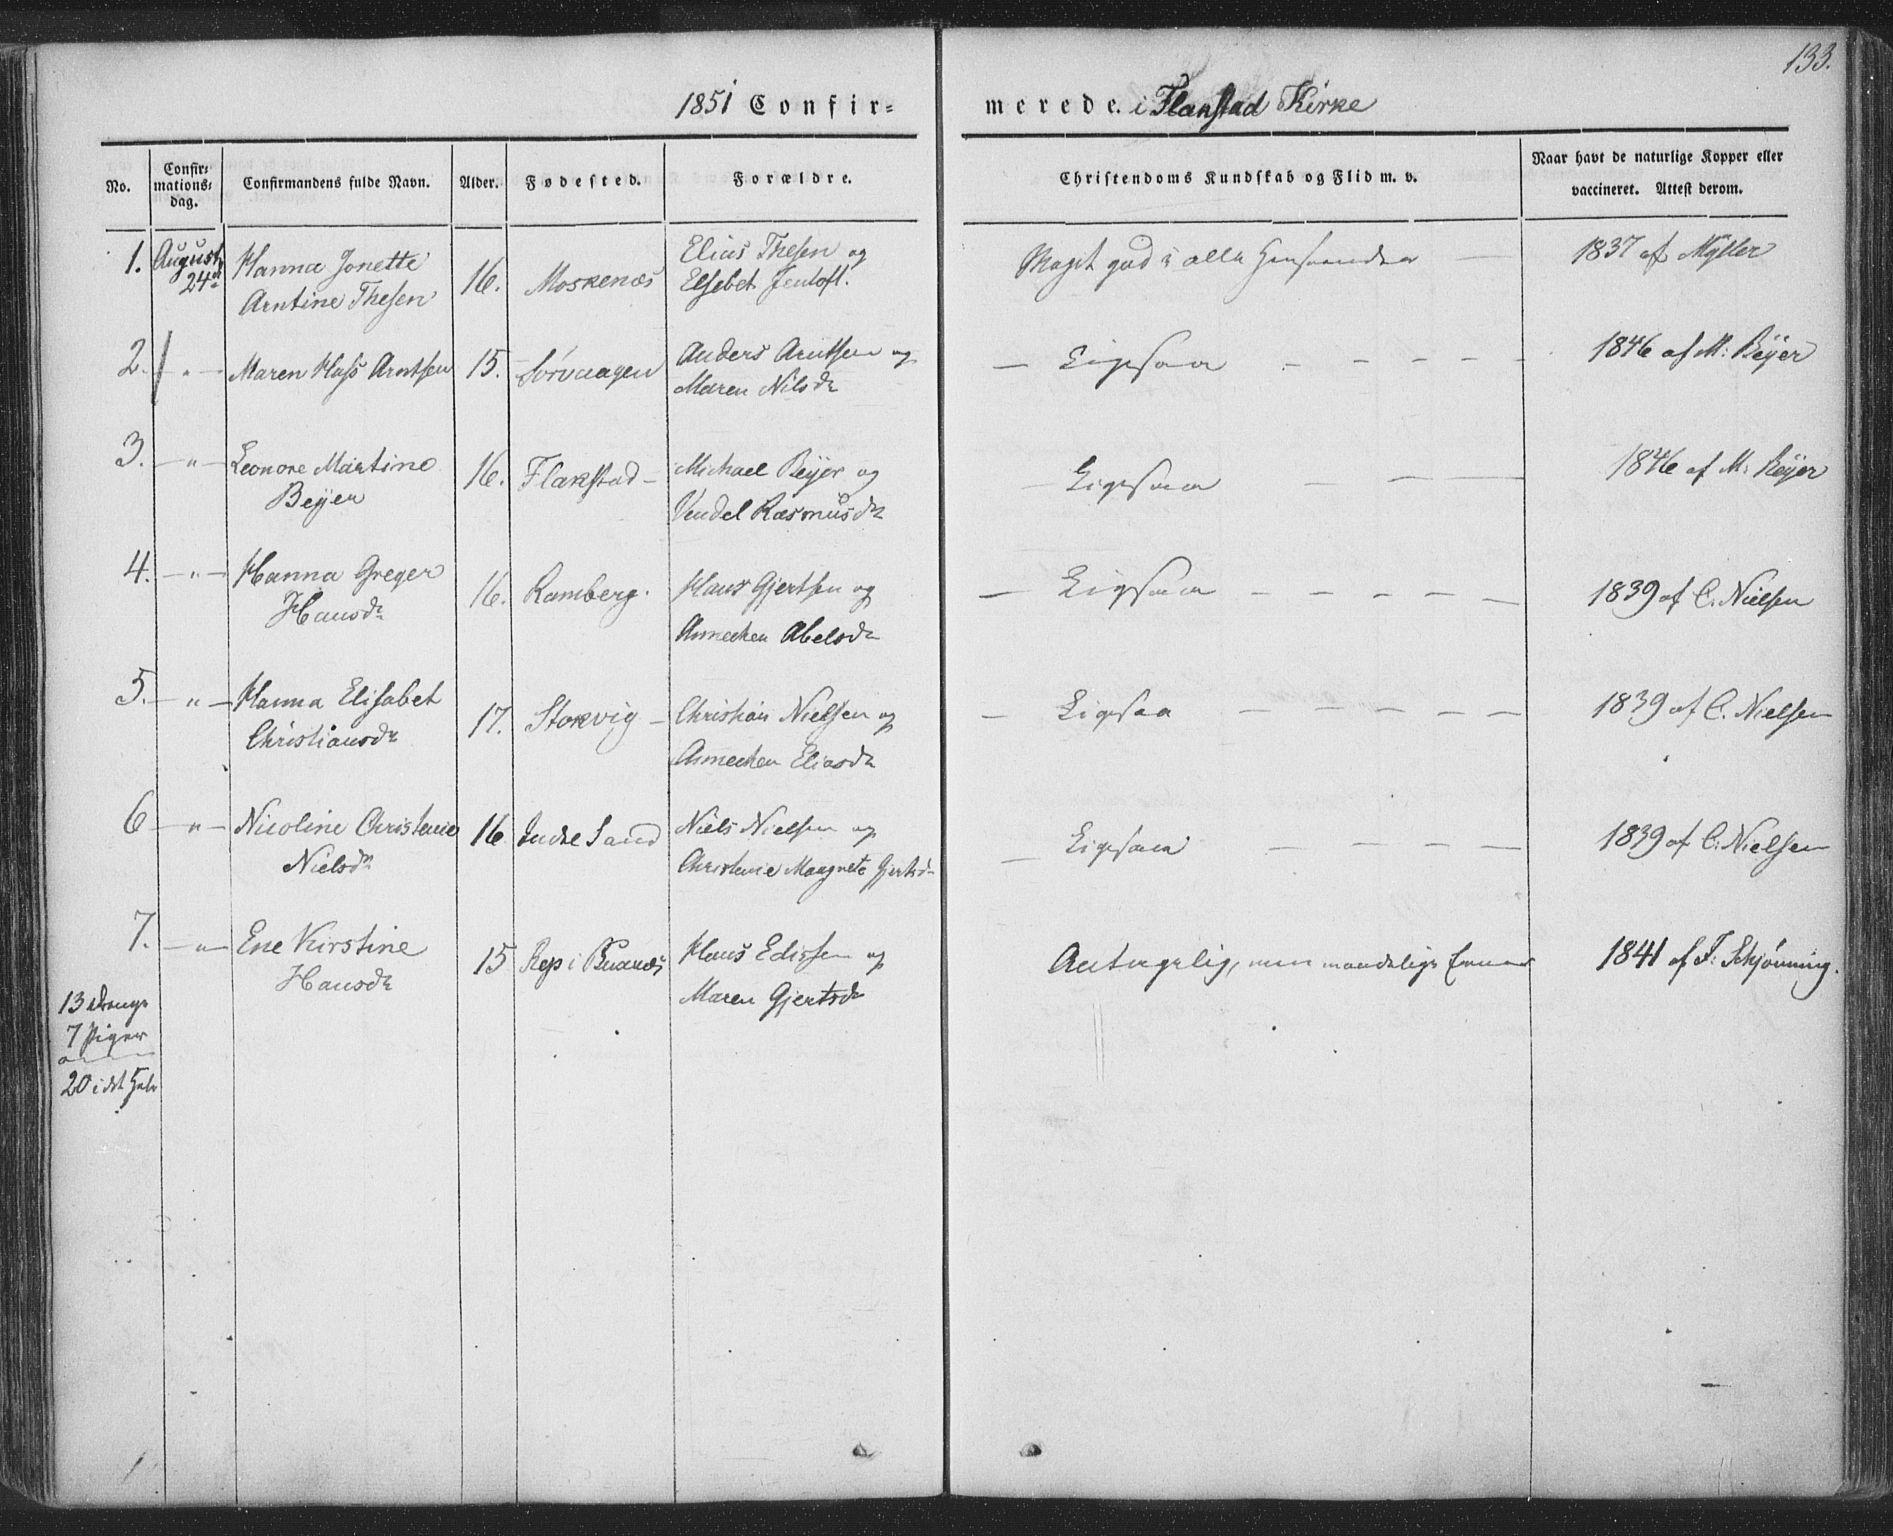 133.
1851 Confir-
merede. i Flakstad Kirke
No.
Confir-
mations-
dag.
Confirmandens fulde Navn.
Alder.
Fødested.
Forældre.
Christendoms Kundskab og Flid m. v.
Naar havt de naturlige Kopper eller
vaccineret. Attest derom.
1. August 24de Hanna Jonette
Arntine Thesen
16. Moskenæs
Elias Thesen og
Elsebet Jentoft.
Meget god i alle Henseender
1837 af Mÿller
2. — " — Maren Hass Arntsen 15. Sørvaagen
Anders Arntsen og
Maren Nilsdr
— Ligesaa — — — —
1846 af M: Beÿer
3. — " — Leonore Martine
Beÿer
16. Flakstad —
Michael Beÿer og
Vendel Rasmusdr
— Ligesaa — — —
1846 af M: Beÿer
4. — " — Hanna Greger
Hansdr
16. Ramberg.
Hans Gjertsen og
Annechen Abelsdr
— Ligesaa — — — — — —
1839 af C. Nielsen
5. — " — Hanna Elisabet
Christiansdr
17. Stokvig —
Christian Nielsen og
Annechen Eliasdr
— Ligesaa — — — — — —
1839 af C. Nielsen
6 — " — Nicoline Christenie
Nielsdr
16 Indre Sand
Niels Nielsen og
Christenie Maagrete Gjertsd
— Ligesaa — — — — —
1839 af C: Nielsen
7. — " — Ene Kirstine
Hansdr
15 Rep i
Hans Edissen og
Maren Gjertsdr
Antagelig, men maadelige Evner
1841 af F: Schjønning.
13 Drenge
7 Piger
20 i det Hele